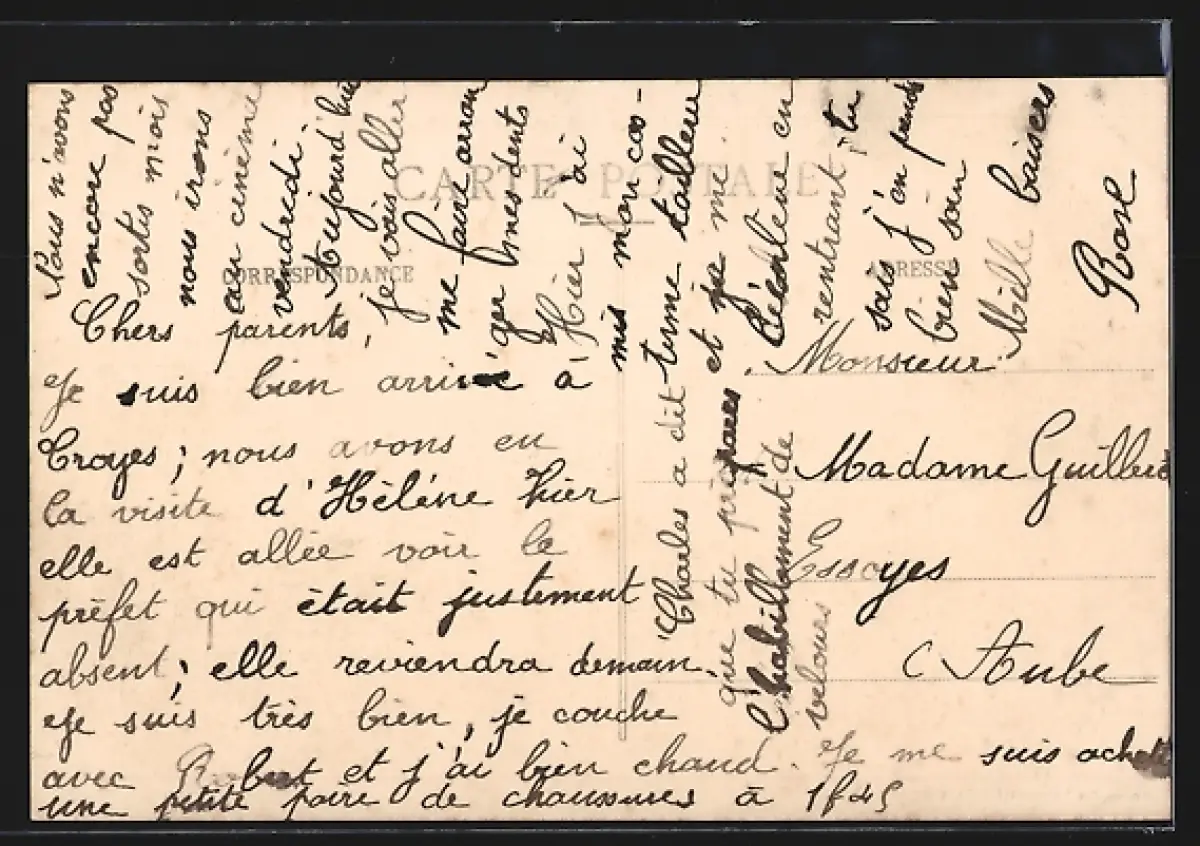 CARTE POSTALE
CORRESPONDANCE
ADRESSE
Chers parents,
Je suis bien arrivé à
Troyes ; nous avons eu
la visite d'Hélène hier
elle est allée voir le
préfet qui était justement
absent ; elle reviendra demain.
Je suis très bien, je couche
avec Robert et j'ai bien chaud. Je me suis acheté
une petite paire de chaussures à 1f45
Nous n'avons
encore pas
sortis mois
nous irons
au cinéma
vendredi
Aujourd'hui
je vais aller
me faire arran
ger mes dents
Hier j'ai
mis mon cos-
tume tailleur
et je me
rentrant tu
sais j'en prends
bien soin
Mille baisers
Rose
Charles a dit
que tu prépares
l'habillement de
velours
Monsieur
Madame
Essoyes
Aube